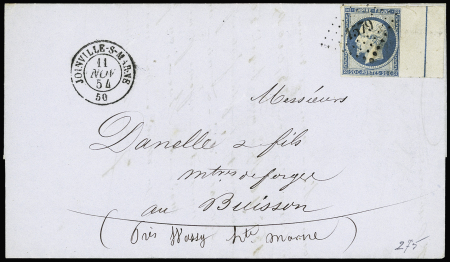 JOINVILLE-S-MARNE
11
NOV
54
50
EMPIRE FRANC
Messieurs
Danelle & fils
mtres de forges
au Buisson
(Près Wassy hte marne)
275